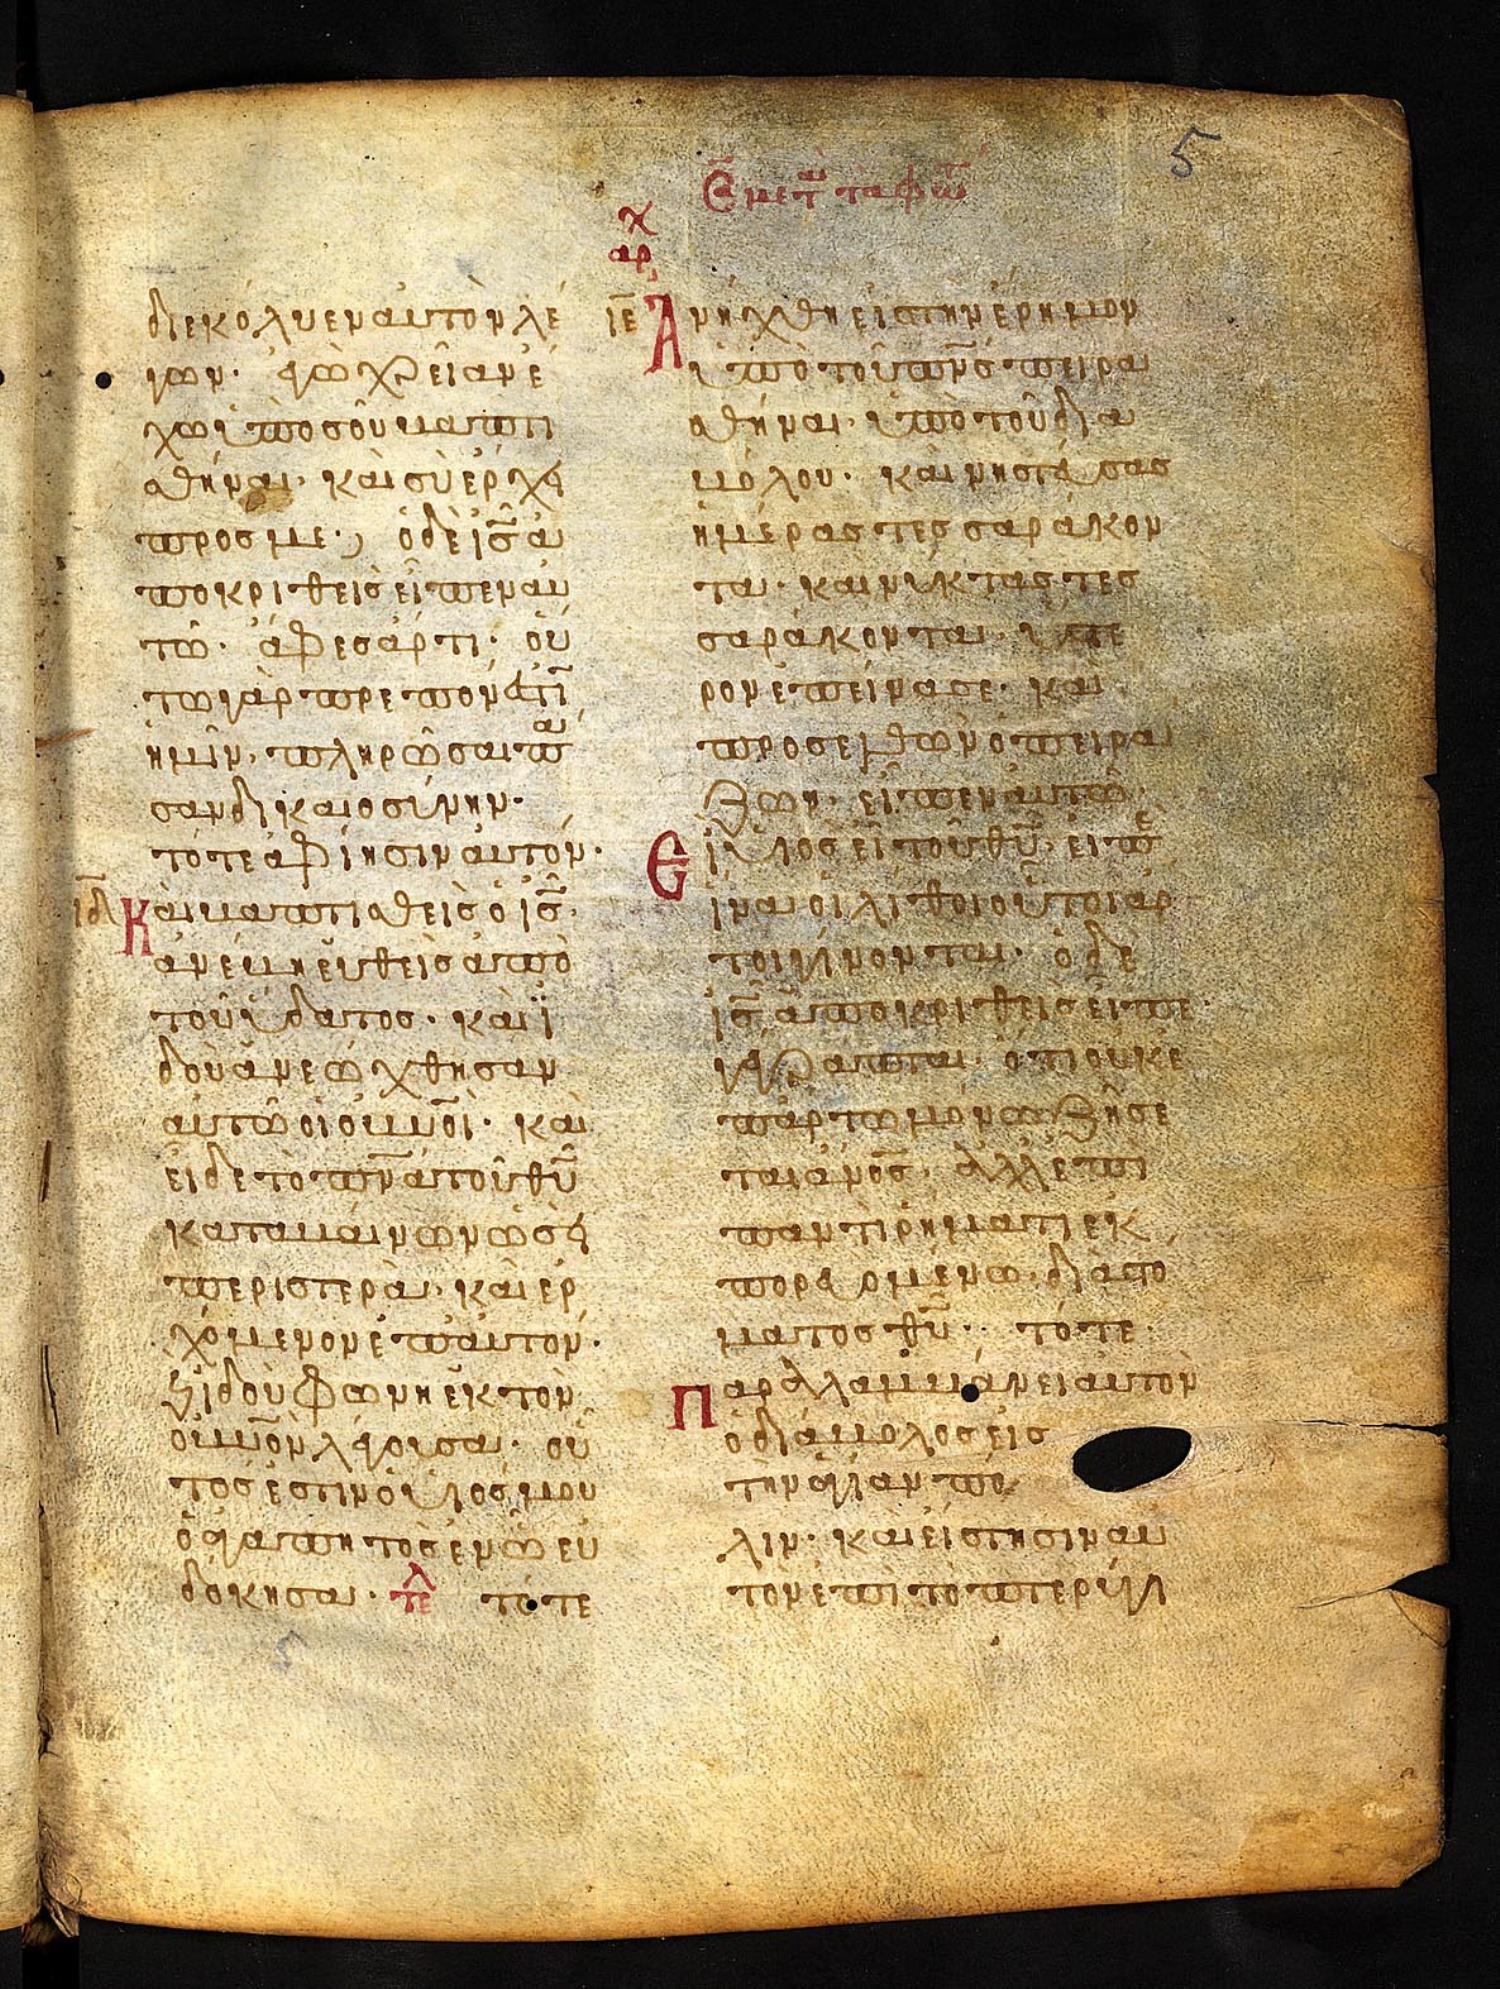 5
Σα μετ τα φωτ
αρχ
διεκόλυεν αυτὸν λέ
γων· ἐγὼ χρείαν ἔ
χω ὑπο σοῦ βαπτι
σθῆναι· καὶ σὺ ἔρχη
προς με· ὁ δὲ ἰς ἀ
ποκριθεὶς εἶπεν αυ
τῶ· ἄφες ἄρτι· οὕ
τω γὰρ πρέπον ἐστὶ
ἡμῖν· πληρῶσαι πᾶ
σαν δικαιοσύνην·
τότε αφίησιν ἀυτόν·
ιδ Καὶ βαπτισθεὶς ὁ ἰς·
ἀνέβη ευθεὶς ἀπὸ
τοῦ ὕδατος· καὶ ϊ
δοὺ ἀνεώχθησαν
αυτῶ οἱ ουνοὶ· καὶ
εἶδε τὸ πνα τοῦ θυ
καταβαίνων ὡσεὶ
περιστερὰν· καὶ ἐρ
χόμενον ἐπ' αυτον·
κ ἰδοὺ φωνὴ ἐκ τὸν
ουνὸν λέγουσα· οὗ
τος ἐστιν ὁ υἱός μου
ὁ ἀγαπητὸς ἐν ῶ ευ
δόκησα· τελ τότε
ιε Ἀνήχθη εἰς τὴν ἔρημον
ὑπὸ τοῦ πνς πειρα
σθῆναι· ὑπὸ τοῦ δια
βόλου· καὶ νηστεύσας
ἡμέρας τεσσαράκον
τα· και νύκτας τες
σαράκοντα· ὕστε
ρον ἐπείνασε· καὶ
προσελθὼν ὁ πειρά
ζων· εἶπεν αυτῶ·
Εἰ υἱὸς εἶ τοῦ θυ· εἰπὲ
ἵνα οἱ λίθοι οὗτοι ἄρ
τοι γίνονται· ὁ δὲ
ἰς ἀποκριθεὶς εἶπε·
γέγραπται· ὅτι οὐκ ἐ
π' ἄρτω μόνω ζήσε
ται ἀνος· ἀλλ' ἐπι
παντὶ ῥήματι ἐκ
πορευομένω· διὰ στό
ματος θυ· τότε
Παραλαμβάνει αυτὸν
ὁ διάβολος εἰς
τὴν ἁγίαν πό
λιν· καὶ εἵστησιν αυ
τὸν ἐπὶ τὸ πτερύγι